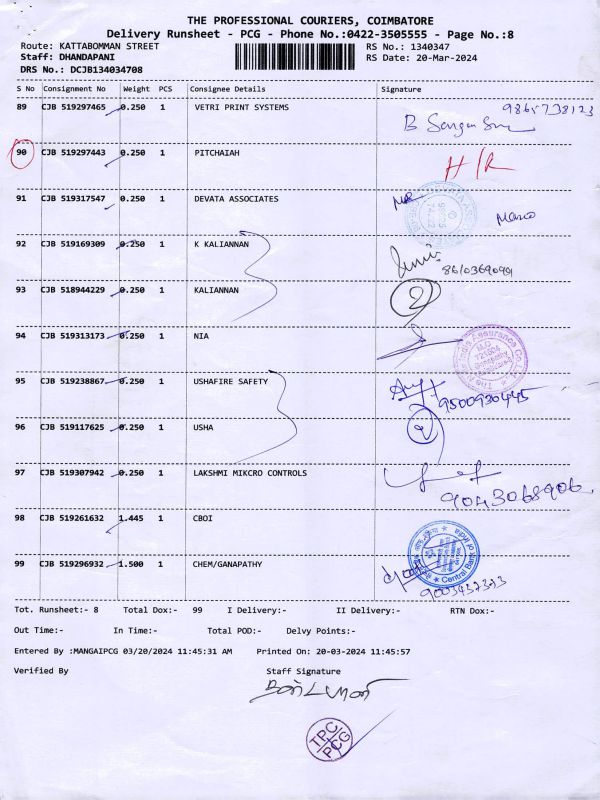 THE PROFESSIONAL COURIERS, COIMBATORE
Delivery Runsheet - PCG - Phone No.:0422-3505555 - Page No.:8
Route: KATTABOMMAN STREET RS No.: 1340347
Staff: DHANDAPANI RS Date: 20-Mar-2024
DRS No.: DCJB134034708
S No Consignment No Weight PCS Consignee Details Signature
89 CJB 519297465 0.250 1 VETRI PRINT SYSTEMS 9865738123
90 CJB 519297443 0.250 1 PITCHAIAH H/R
91 CJB 519317547 0.250 1 DEVATA ASSOCIATES
92 CJB 519169309 0.250 1 K KALIANNAN
93 CJB 518944229 0.250 1 KALIANNAN 2
94 CJB 519313173 0.250 1 NIA
95 CJB 519238867 0.250 1 USHAFIRE SAFETY 9500930445
96 CJB 519117625 0.250 1 USHA 2
97 CJB 519307942 0.250 1 LAKSHMI MIKCRO CONTROLS 9043068906
98 CJB 519261632 1.445 1 CBOI Central Bank of India
99 CJB 519296932 1.500 1 CHEM/GANAPATHY
Tot. Runsheet:- 8 Total Dox:- 99 I Delivery:- II Delivery:- RTN Dox:-
Out Time:- In Time:- Total POD:- Delvy Points:-
Entered By :MANGAIPCG 03/20/2024 11:45:31 AM Printed On: 20-03-2024 11:45:57
Verified By Staff Signature
TPC
PCG